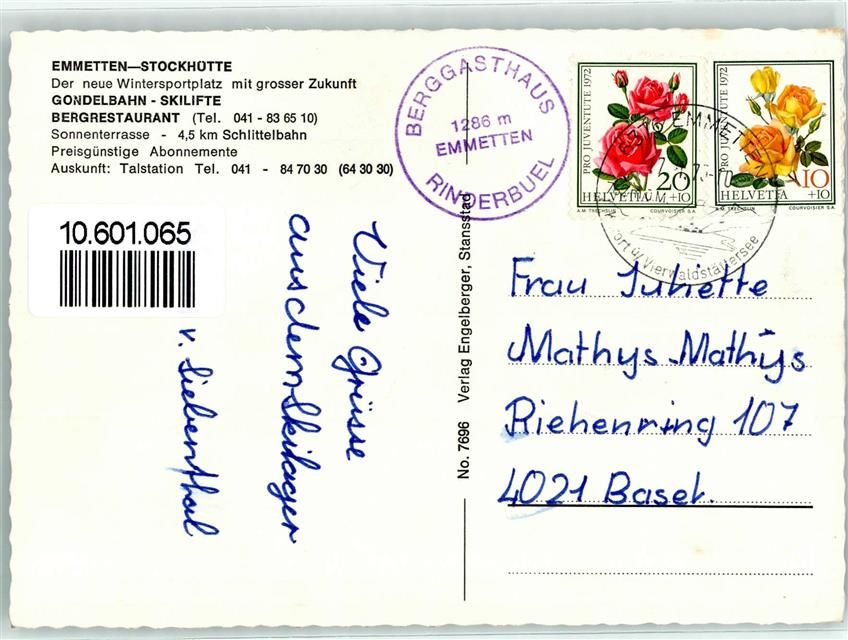 EMMETTEN—STOCKHÜTTE
Der neue Wintersportplatz mit grosser Zukunft
GONDELBAHN - SKILIFTE
BERGRESTAURANT (Tel. 041 - 83 65 10)
Sonnenterrasse - 4,5 km Schlittelbahn
Preisgünstige Abonnemente
Auskunft: Talstation Tel. 041 - 84 70 30 (64 30 30)
10.601.065
Viele Grüsse
aus dem Skilager
v. Siebenthal
BERGGASTHAUS
1286 m
EMMETTEN
RINDERBUEL
No. 7696 Verlag Engelberger, Stansstad
PRO JUVENTUTE 1972
20
HELVETIA +10
A.M. TRECHSLIN COURVOISIER S.A.
PRO JUVENTUTE 1972
10
HELVETIA +10
A.M. TRECHSLIN COURVOISIER S.A.
EMMETTEN
ort ü/Vierwaldstättersee
Frau Juliette
Mathys-Mathys
Riehenring 107
4021 Basel.